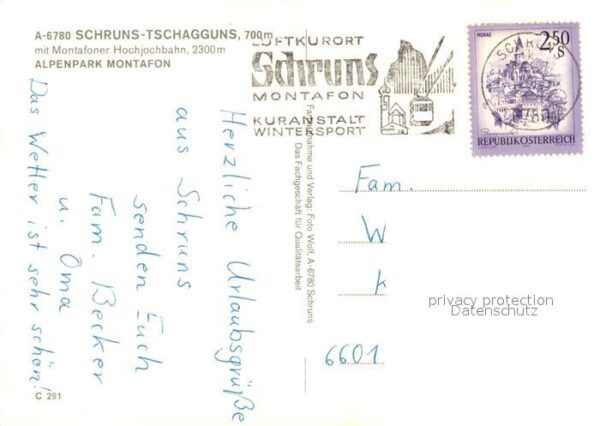 A-6780 SCHRUNS-TSCHAGGUNS, 700 m
mit Montafoner Hochjochbahn, 2300 m
ALPENPARK MONTAFON
LUFTKURORT
Schruns
MONTAFON
KURANSTALT
WINTERSPORT
MURAU
2.50
S
REPUBLIK ÖSTERREICH
SCHRUNS
Herzliche Urlaubsgrüße
aus Schruns
senden Euch
Fam. Becker
u. Oma
Das Wetter ist sehr schön!
Farbaufnahme und Verlag: Foto Wolf, A-6780 Schruns
Das Fachgeschäft für Qualitätsarbeit
Fam.
W
k
6601
privacy protection
Datenschutz
C 291